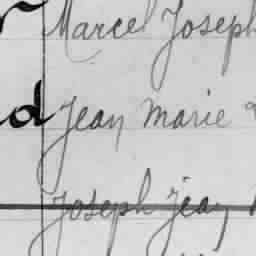 Marcel Joseph
d Jean Marie
Joseph Jean